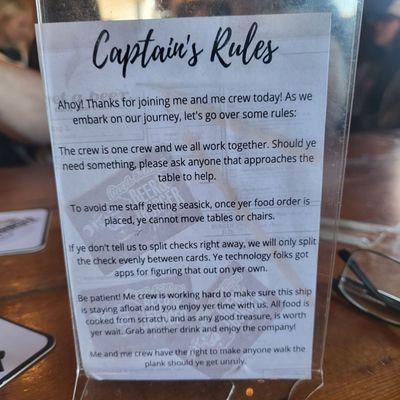 Captain's Rules
Ahoy! Thanks for joining me and me crew today! As we
embark on our journey, let's go over some rules:
The crew is one crew and we all work together. Should ye
need something, please ask anyone that approaches the
table to help.
To avoid me staff getting seasick, once yer food order is
placed, ye cannot move tables or chairs.
If ye don't tell us to split checks right away, we will only split
the check evenly between cards. Ye technology folks got
apps for figuring that out on yer own.
Be patient! Me crew is working hard to make sure this ship
is staying afloat and you enjoy yer time with us. All food is
cooked from scratch, and as any good treasure, is worth
yer wait. Grab another drink and enjoy the company!
Me and me crew have the right to make anyone walk the
plank should ye get unruly.